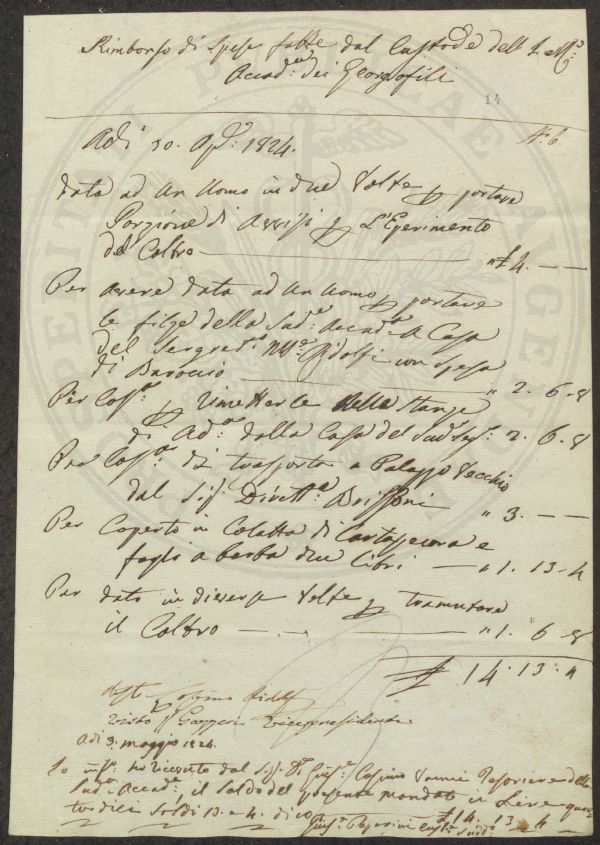 Rimborso di Spese fatte dal Custode dell'I. e R.
Accad:a dei Georgofili
14
N:o 6.
Adi 30. Ap:e 1824.
Dato ad un Uomo in due Volte p portare
Porzione di Avvisi p L'Sperimento
del Coltro — " £ 4. — —
Per avere dato ad un Uomo p portare
le filze della Sud:a Accad:a a Casa
del Segret:o M:e Ridolfi con Spesa
di Baroccio — " 2. 6. 8
Per p rimetterle nelle Stanze
di Ad:a dalla Casa del Sud: 2. 6. 8
Per di trasporto a Palazzo Vecchio
dal Sig: " 3. — —
Per Coperto in Colatta di Cartapecora e
fogli a barba due libri — " 1. 13. 4
Per dato in diverse Volte p tramutare
il Coltro — " 1. 6. 8
£ 14. 13. 4
Cosimo Ridolfi
Visto Gazzeri Vicepresidente
Adi 3. maggio 1824.
Io ho ricevuto dal Sig: D: Gius:e Cosimo Vanni Tesoriere della
Sud:a Accad:a il Saldo del presente mandato in Lire quat
tordici Soldi 13. e 4. dico £ 14. 13. 4
Gius:e Cust:e Sudd:o